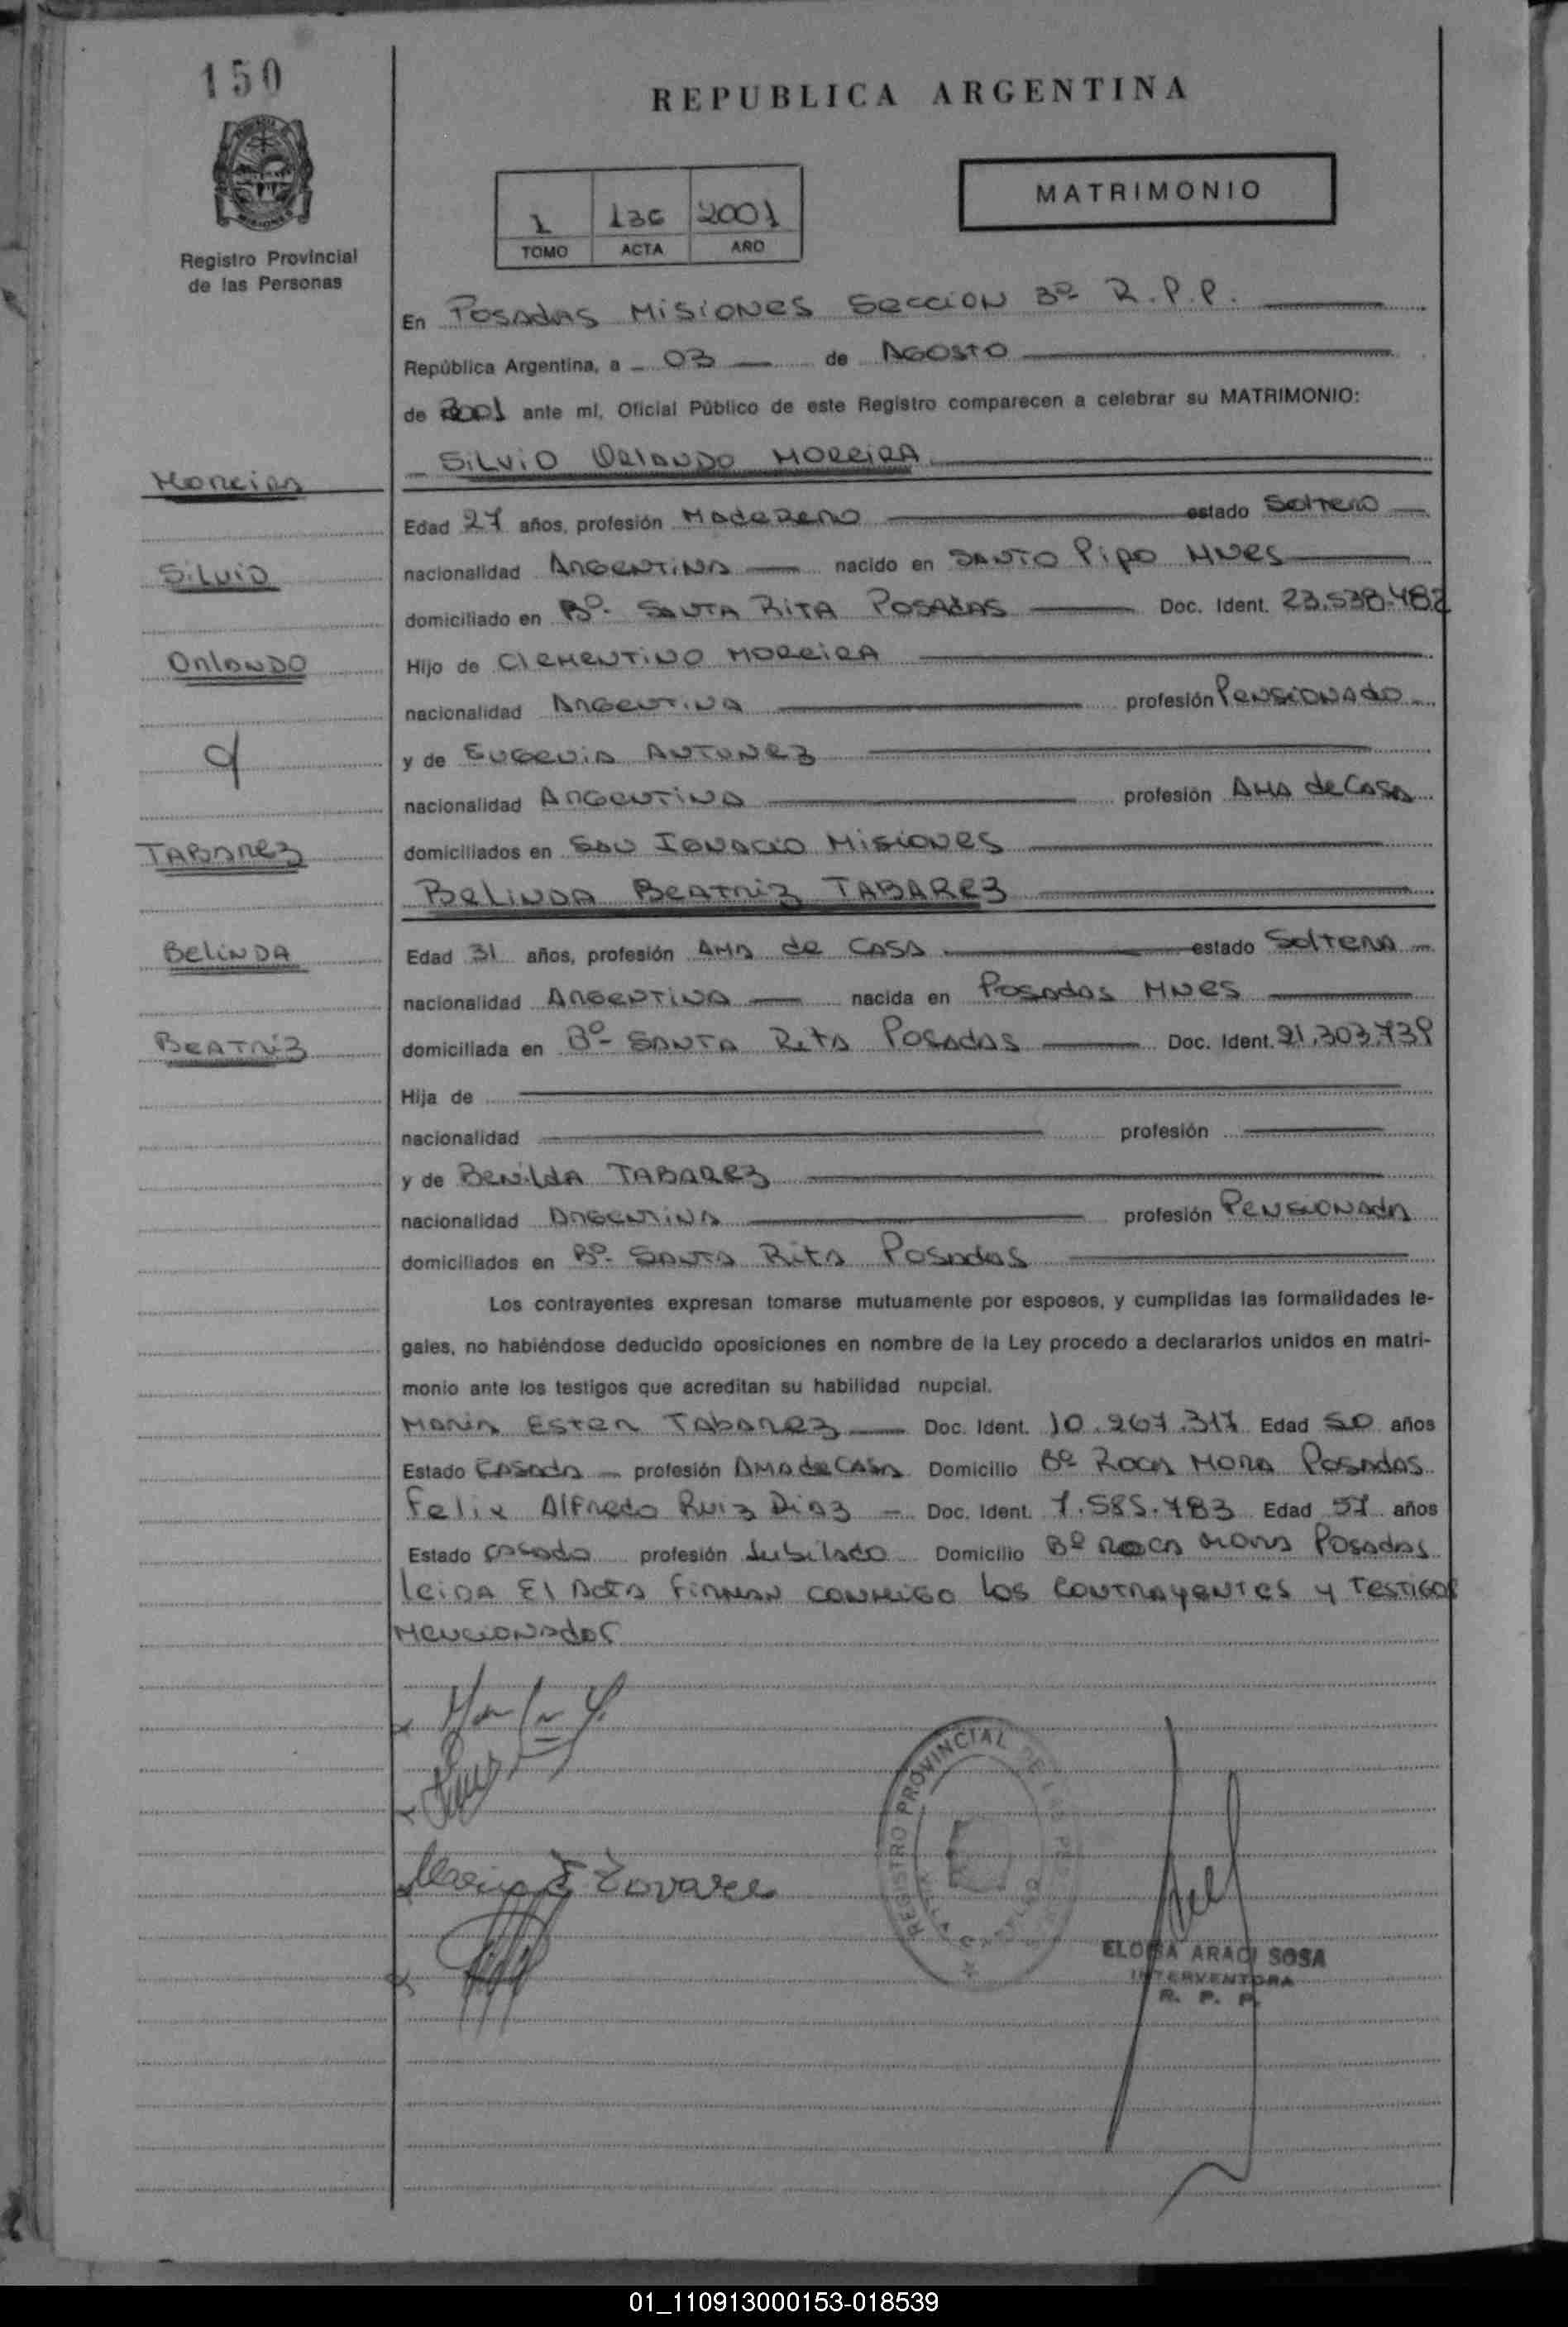 150
REPUBLICA ARGENTINA
MATRIMONIO
1 136 2001
TOMO ACTA AÑO
Registro Provincial
de las Personas
En POSADAS MISIONES SECCION 3º R.P.P.
República Argentina, a 03 de AGOSTO
de 2001 ante mí, Oficial Público de este Registro comparecen a celebrar su MATRIMONIO:
SILVIO ORLANDO MOREIRA
MOREIRA
Edad 27 años, profesión MADERERO estado SOLTERO
SILVIO
nacionalidad ARGENTINA nacido en SANTO PIPO MNES
domiciliado en Bº- SANTA RITA POSADAS Doc. Ident. 23.538.482
ORLANDO
Hijo de CLEMENTINO MOREIRA
nacionalidad ARGENTINA profesión PENSIONADO
y de EUGENIA ANTUNEZ
nacionalidad ARGENTINA profesión AMA de CASA
TABAREZ
domiciliados en SAN IGNACIO MISIONES
BELINDA BEATRIZ TABAREZ
BELINDA
Edad 31 años, profesión AMA de CASA estado SOLTERA
nacionalidad ARGENTINA nacida en POSADAS MNES
BEATRIZ
domiciliada en Bº- SANTA RITA POSADAS Doc. Ident. 21.303.739
Hija de
nacionalidad profesión
y de BENILDA TABAREZ
nacionalidad ARGENTINA profesión PENSIONADA
domiciliados en Bº- SANTA RITA POSADAS
Los contrayentes expresan tomarse mutuamente por esposos, y cumplidas las formalidades le-
gales, no habiéndose deducido oposiciones en nombre de la Ley procedo a declararlos unidos en matri-
monio ante los testigos que acreditan su habilidad nupcial.
MARIA ESTER TABAREZ Doc. Ident. 10.267.317 Edad 50 años
Estado CASADA profesión AMA de CASA Domicilio Bº ROCA MORA POSADAS
Felix Alfredo Ruiz Diaz Doc. Ident. 7.585.783 Edad 57 años
Estado casado profesión Jubilado Domicilio Bº ROCA MORA POSADAS
leida El Acta firman conmigo los contrayentes y testigos
mencionados
Maria E Tovarez
REGISTRO PROVINCIAL DE LAS
ELODIA ARACI SOSA
INTERVENTORA
R. P. P.
01_110913000153-018539